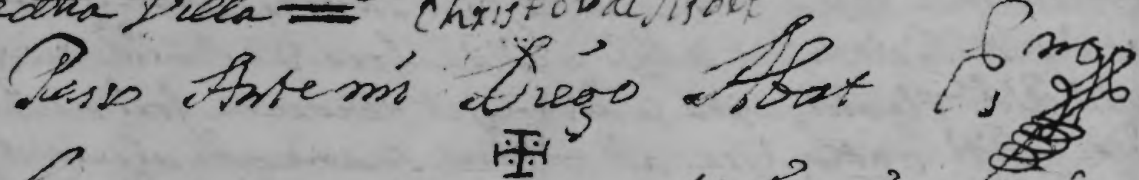 dha Villa = Christoval
Paso Ante mi Diego Abat Ess no